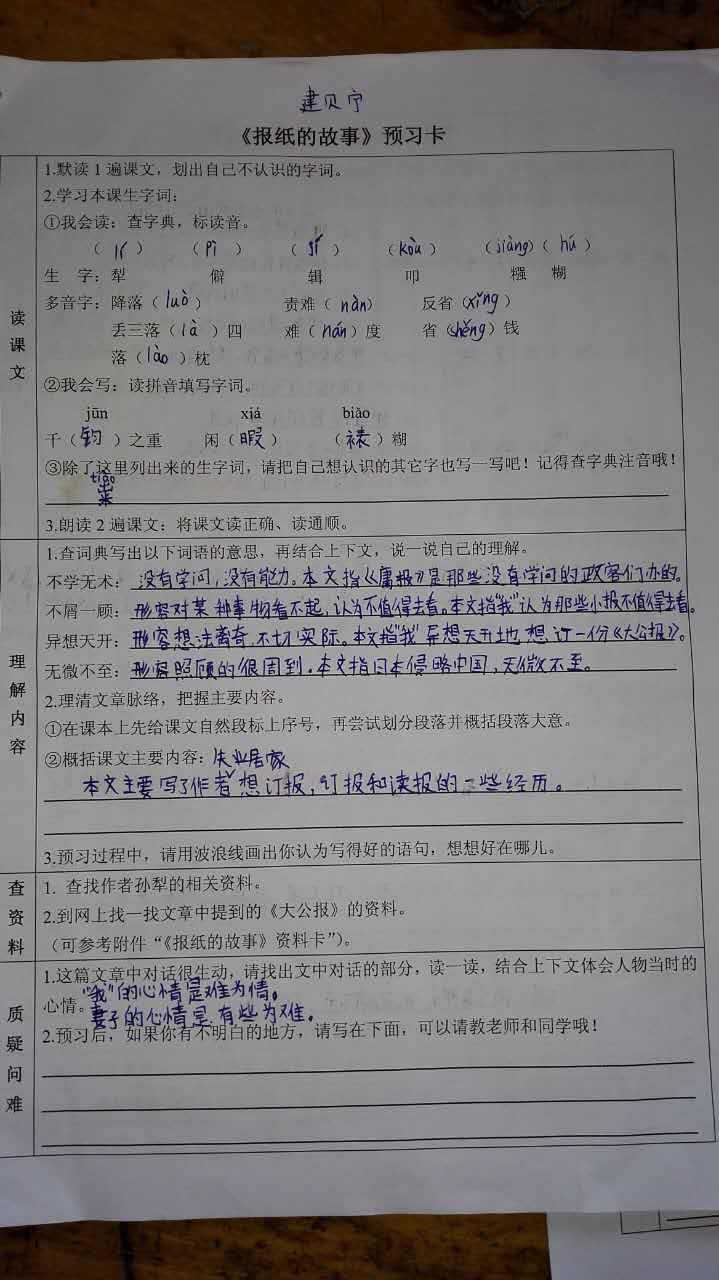 建贝宁
《报纸的故事》预习卡
读课文
1.默读1遍课文，划出自己不认识的字词。
2.学习本课生字词：
①我会读：查字典，标读音。
（lí）（pì）（jí）（kòu）（jiàng）（hú）
生 字：犁 僻 辑 叩 糨 糊
多音字：降落（luò） 责难（nàn） 反省（xǐng）
丢三落（là）四 难（nán）度 省（shěng）钱
落（lào）枕
②我会写：读拼音填写字词。
jūn xiá biǎo
千（钧）之重 闲（暇） （裱）糊
③除了这里列出来的生字词，请把自己想认识的其它字也写一写吧！记得查字典注音哦！
tiào
粜
3.朗读2遍课文：将课文读正确、读通顺。
理解内容
1.查词典写出以下词语的意思，再结合上下文，说一说自己的理解。
不学无术：没有学问，没有能力。本文指《庸报》是那些没有学问的政客们办的。
不屑一顾：形容对某种事物看不起，认为不值得去看。本文指"我"认为那些小报不值得去看。
异想天开：形容想法离奇，不切实际。本文指"我"异想天开地想订一份《大公报》。
无微不至：形容照顾的很周到。本文指日本侵略中国，无微不至。
2.理清文章脉络，把握主要内容。
①在课本上先给课文自然段标上序号，再尝试划分段落并概括段落大意。
②概括课文主要内容：失业居家
本文主要写了作者想订报，订报和读报的一些经历。
3.预习过程中，请用波浪线画出你认为写得好的语句，想想好在哪儿。
查资料
1. 查找作者孙犁的相关资料。
2.到网上找一找文章中提到的《大公报》的资料。
（可参考附件“《报纸的故事》资料卡”）。
质疑问难
1.这篇文章中对话很生动，请找出文中对话的部分，读一读，结合上下文体会人物当时的
心情。"我"的心情是难为情。
妻子的心情是有些为难。
2.预习后，如果你有不明白的地方，请写在下面，可以请教老师和同学哦！